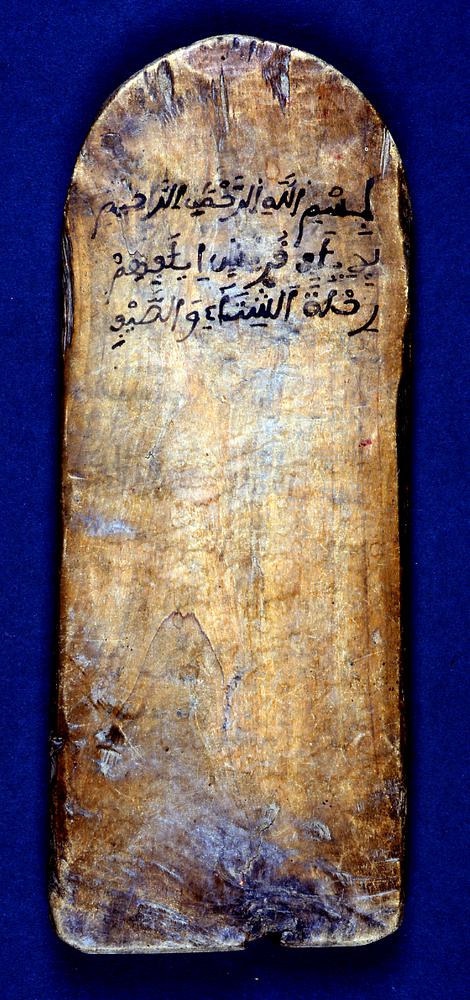 بِسْمِ اللَّهِ الرَّحْمَنِ الرَّحِيمِ
قُرَيْشٍ إِيلَٰفِهِمْ
رِحْلَةَ الشِّتَآءِ وَالصَّيْفِ